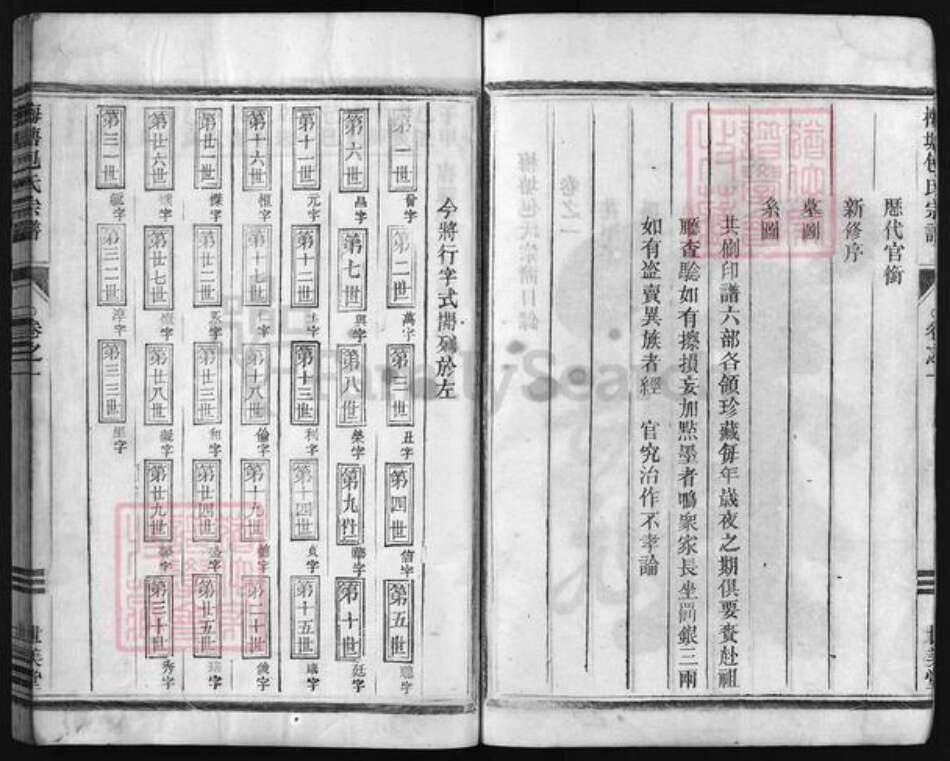 歷代官銜
新修序
墓圖
系圖
共刷印譜六部各領珍藏每年歲夜之期俱要賫赴祖
廳查驗如有擦損妄加點墨者鳴衆家長坐罰銀三兩
如有盗賣異族者經 官究治作不孝論
梅塘包氏宗譜
卷之一
世美堂
今將行字式開列於左
第一世 晉字 第二世 萬字 第三世 丑字 第四世 信字 第五世 聰字
第六世 昌字 第七世 興字 第八世 榮字 第九世 華字 第十世 廷字
第十一世 元字 第十二世 第十三世 利字 第十四世 貞字 第十五世 瑞字
第十六世 恒字 第十七世 仁字 第十八世 倫字 第十九世 第二十世 俊字
第廿一世 傑字 第廿二世 第廿三世 和字 第廿四世 第廿五世
第廿六世 第廿七世 第廿八世 第廿九世 第三十世 秀字
第三一世 第三二世 淳字 第三三世
梅塘包氏宗譜
卷之一
世美堂
FamilySearch